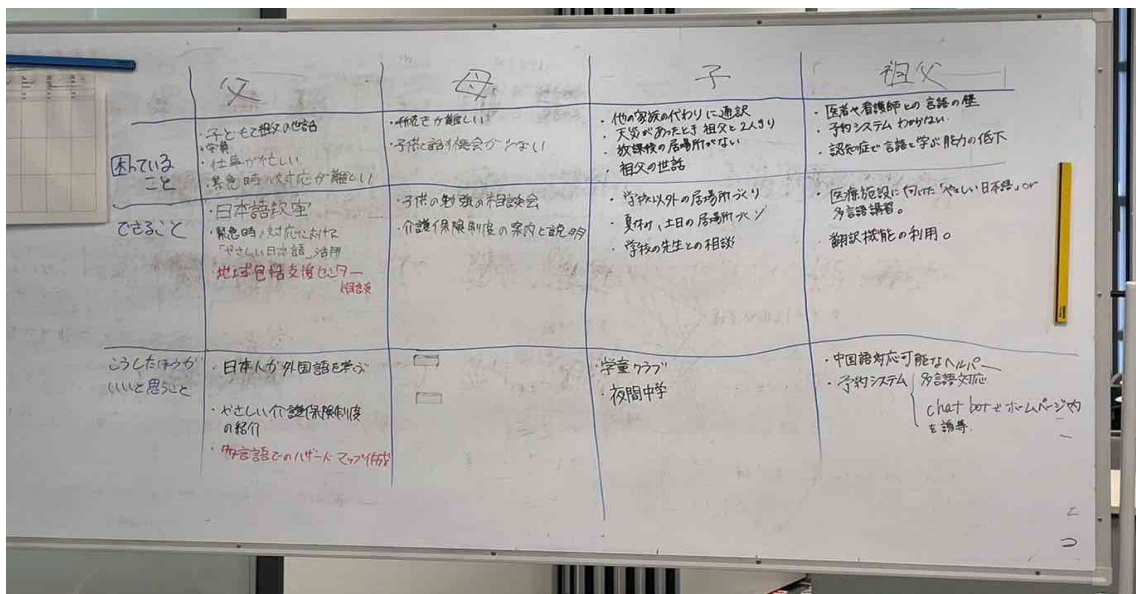 父
母
子
祖父
困っている
こと
・子どもと祖父の世話
・仕事が忙しい
・緊急時の対応が難しい
・手続きが難しい
・子供と話す機会が少ない
・他の家族の代わりに通訳
・天災があったとき 祖父と2人きり
・放課後の居場所がない
・祖父の世話
・医者や看護師との言語の壁
・予約システム わからない
・認知症で言語を学ぶ能力の低下
できること
・日本語教室
・緊急時の対応における
「やさしい日本語」活用
・地域包括支援センター
相談
・子供の勉強の相談会
・介護保険制度の案内と説明
・学校以外の居場所づくり
・夏休み、土日の居場所づくり
・学校の先生との相談
・医療施設に向けた「やさしい日本語」or
多言語講習。
・翻訳機能の利用。
こうしたほうが
いいと思うこと
・日本人が外国語を学ぶ
・やさしい介護保険制度
の紹介
・多言語でのハザードマップ作成
学童クラブ
・夜間中学
・中国語対応可能なヘルパー
・予約システム
多言語対応
chat botでホームページ内
を誘導